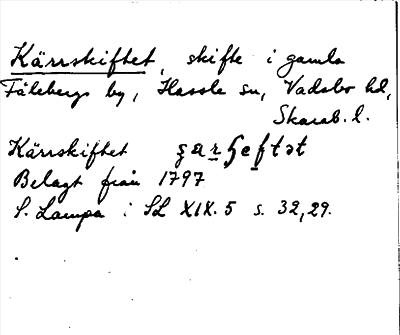 Kärrskiftet, skifte i gamla
Fälebergs by, Hassle sn, Vadsbo hd,
Skarab. l.
Kärrskiftet
Belagt från 1797
S. Lampa i SL XIX. 5 s. 32, 29.